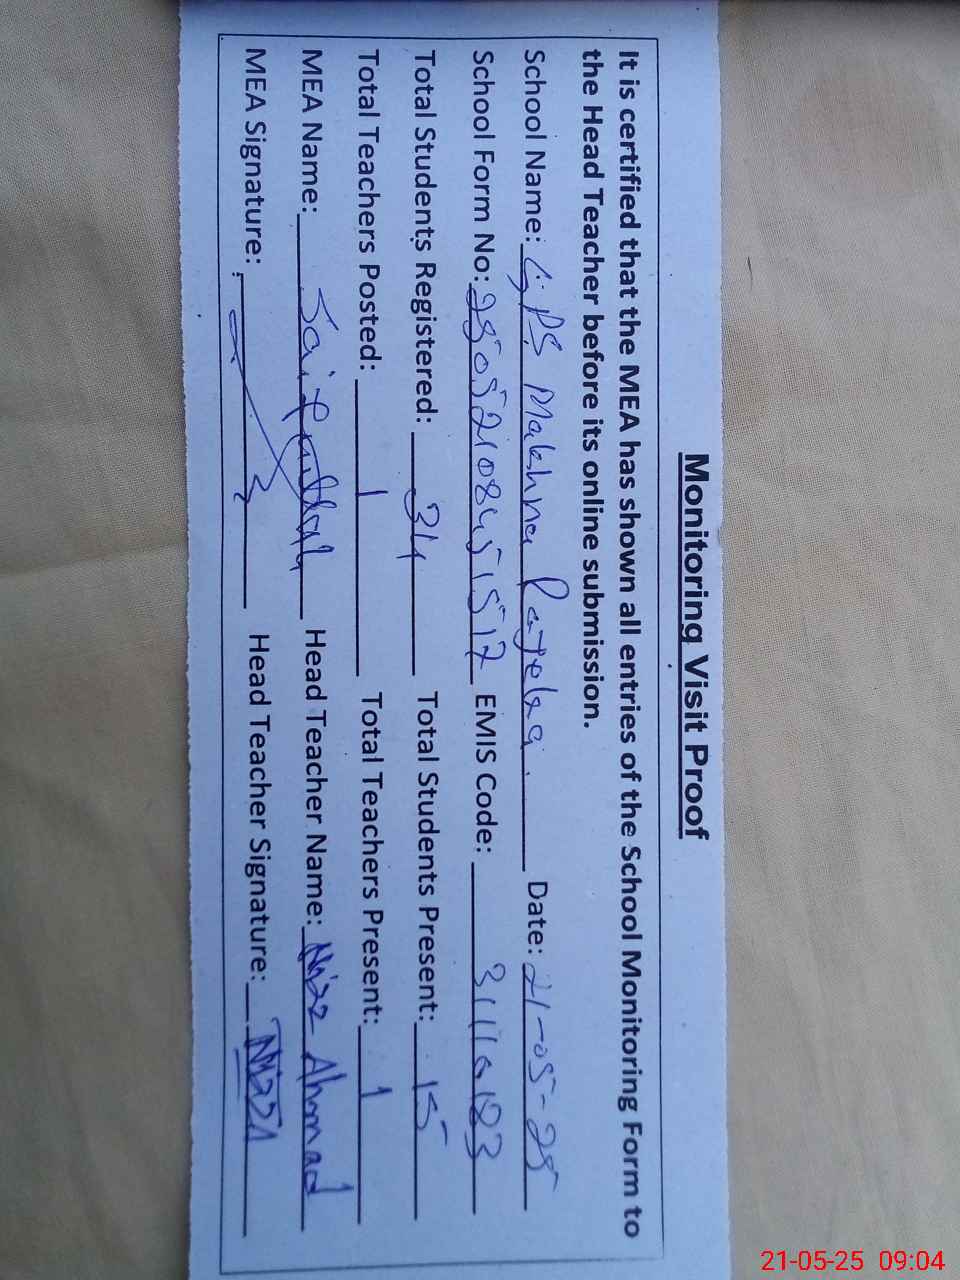 Monitoring Visit Proof
It is certified that the MEA has shown all entries of the School Monitoring Form to
the Head Teacher before its online submission.
School Name: GPS Makhna Date: 21-05-25
School Form No: EMIS Code:
Total Students Registered: 34 Total Students Present: 15
Total Teachers Posted: 1 Total Teachers Present: 1
MEA Name: Saifullah Head Teacher Name: Niaz Ahmad
MEA Signature: Head Teacher Signature:
21-05-25 09:04